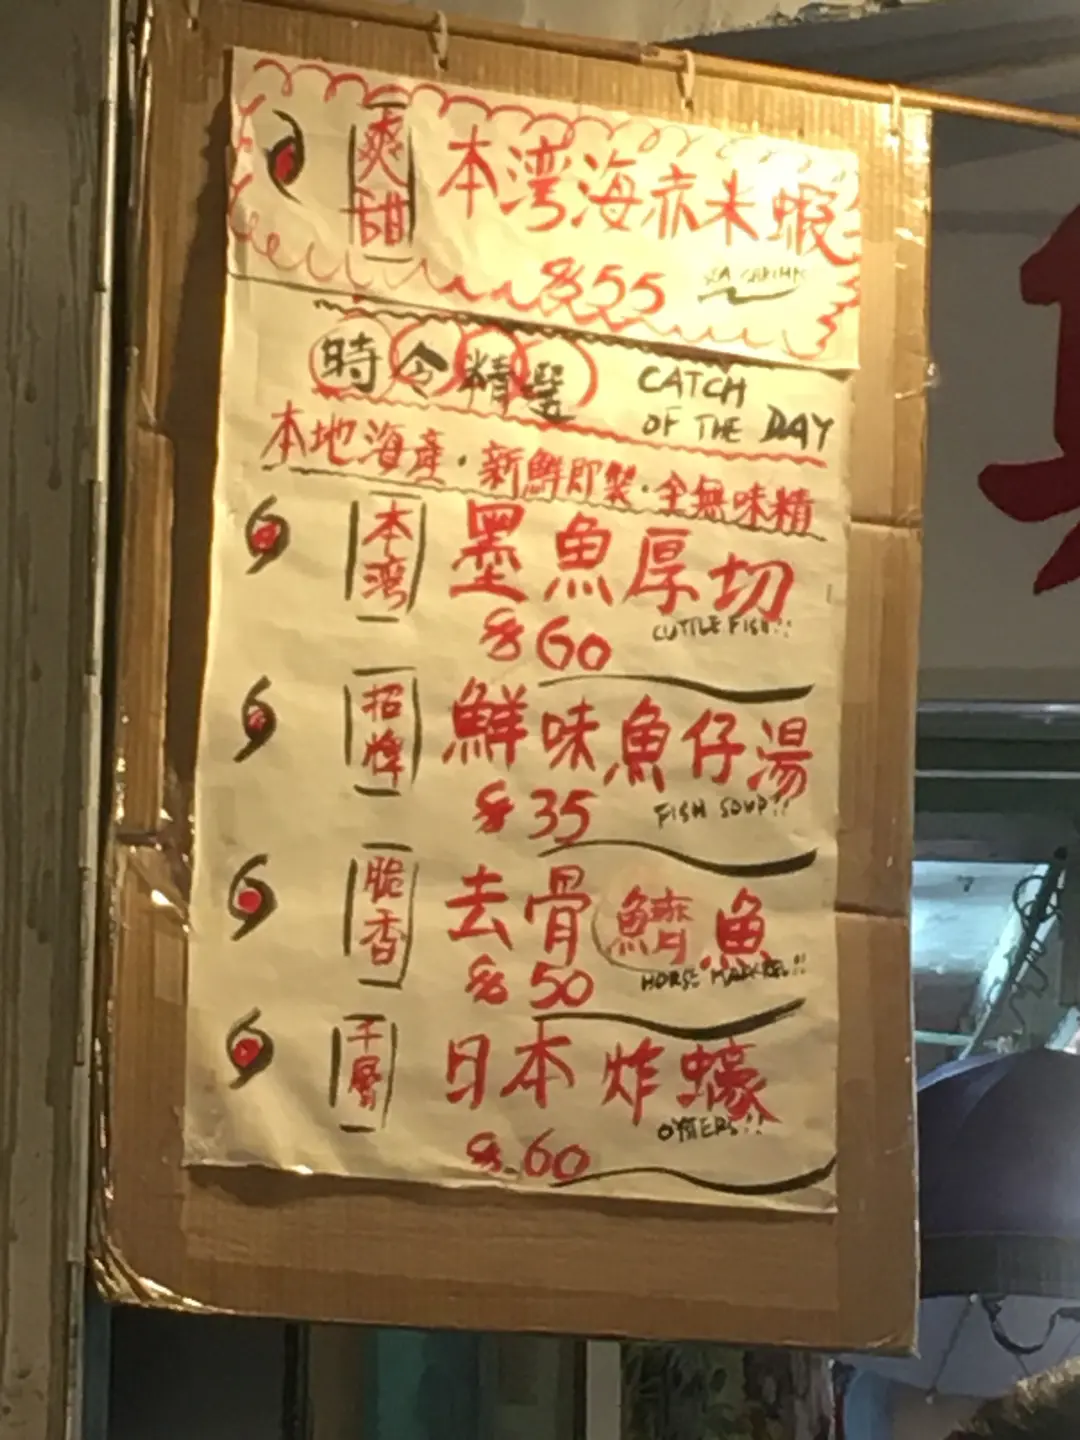 爽甜 本湾海赤米蝦
$55 SEA SHRIMP
時令精選 CATCH OF THE DAY
本地海產·新鮮即製·全無味精
本湾 墨魚厚切
$60 CUTTLE FISH!!
招牌 鮮味魚仔湯
$35 FISH SOUP!!
脆香 去骨鱭魚
$50 HORSE MACKREL!!
千層 日本炸蠔
$60 OYSTERS!!